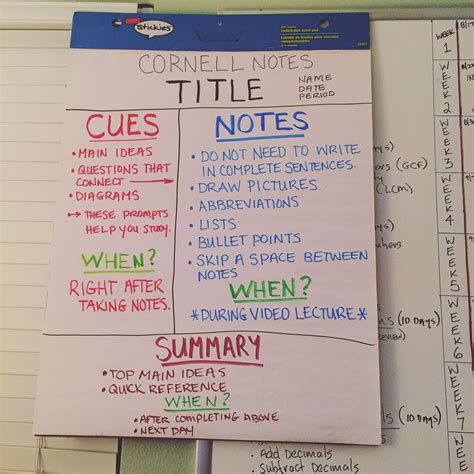 Stickies
CORNELL NOTES
TITLE
NAME
DATE
PERIOD
CUES
• MAIN IDEAS
• QUESTIONS THAT
CONNECT →
• DIAGRAMS
→ THESE PROMPTS
HELP YOU STUDY.
WHEN?
RIGHT AFTER
TAKING NOTES.
NOTES
• DO NOT NEED TO WRITE
IN COMPLETE SENTENCES.
• DRAW PICTURES
• ABBREVIATIONS
• LISTS
• BULLET POINTS
• SKIP A SPACE BETWEEN
NOTES
WHEN?
*DURING VIDEO LECTURE*
SUMMARY
• TOP MAIN IDEAS
• QUICK REFERENCE
WHEN?
• AFTER COMPLETING ABOVE
• NEXT DAY
WEEK
1
WEEK
2
WEEK
3
WEEK
4
WEEK
5
WEEK
6
WEEK
7
(GCF)
(LCM)
(10 DAYS)
(10 DAYS)
• Add Decimals
• Subtract Decimals